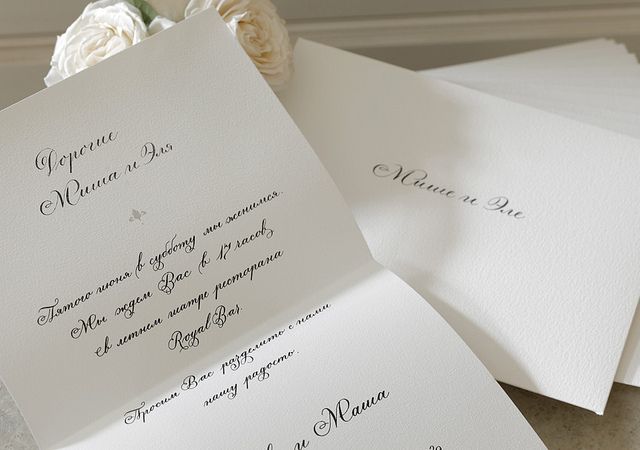 Дорогие
Миша и Эля
Пятого июня в субботу мы женимся.
Мы ждем Вас в 17 часов
в летнем шатре ресторана
Royal Bar.
Просим Вас разделить с нами
нашу радость.
и Маша
Мише и Эле